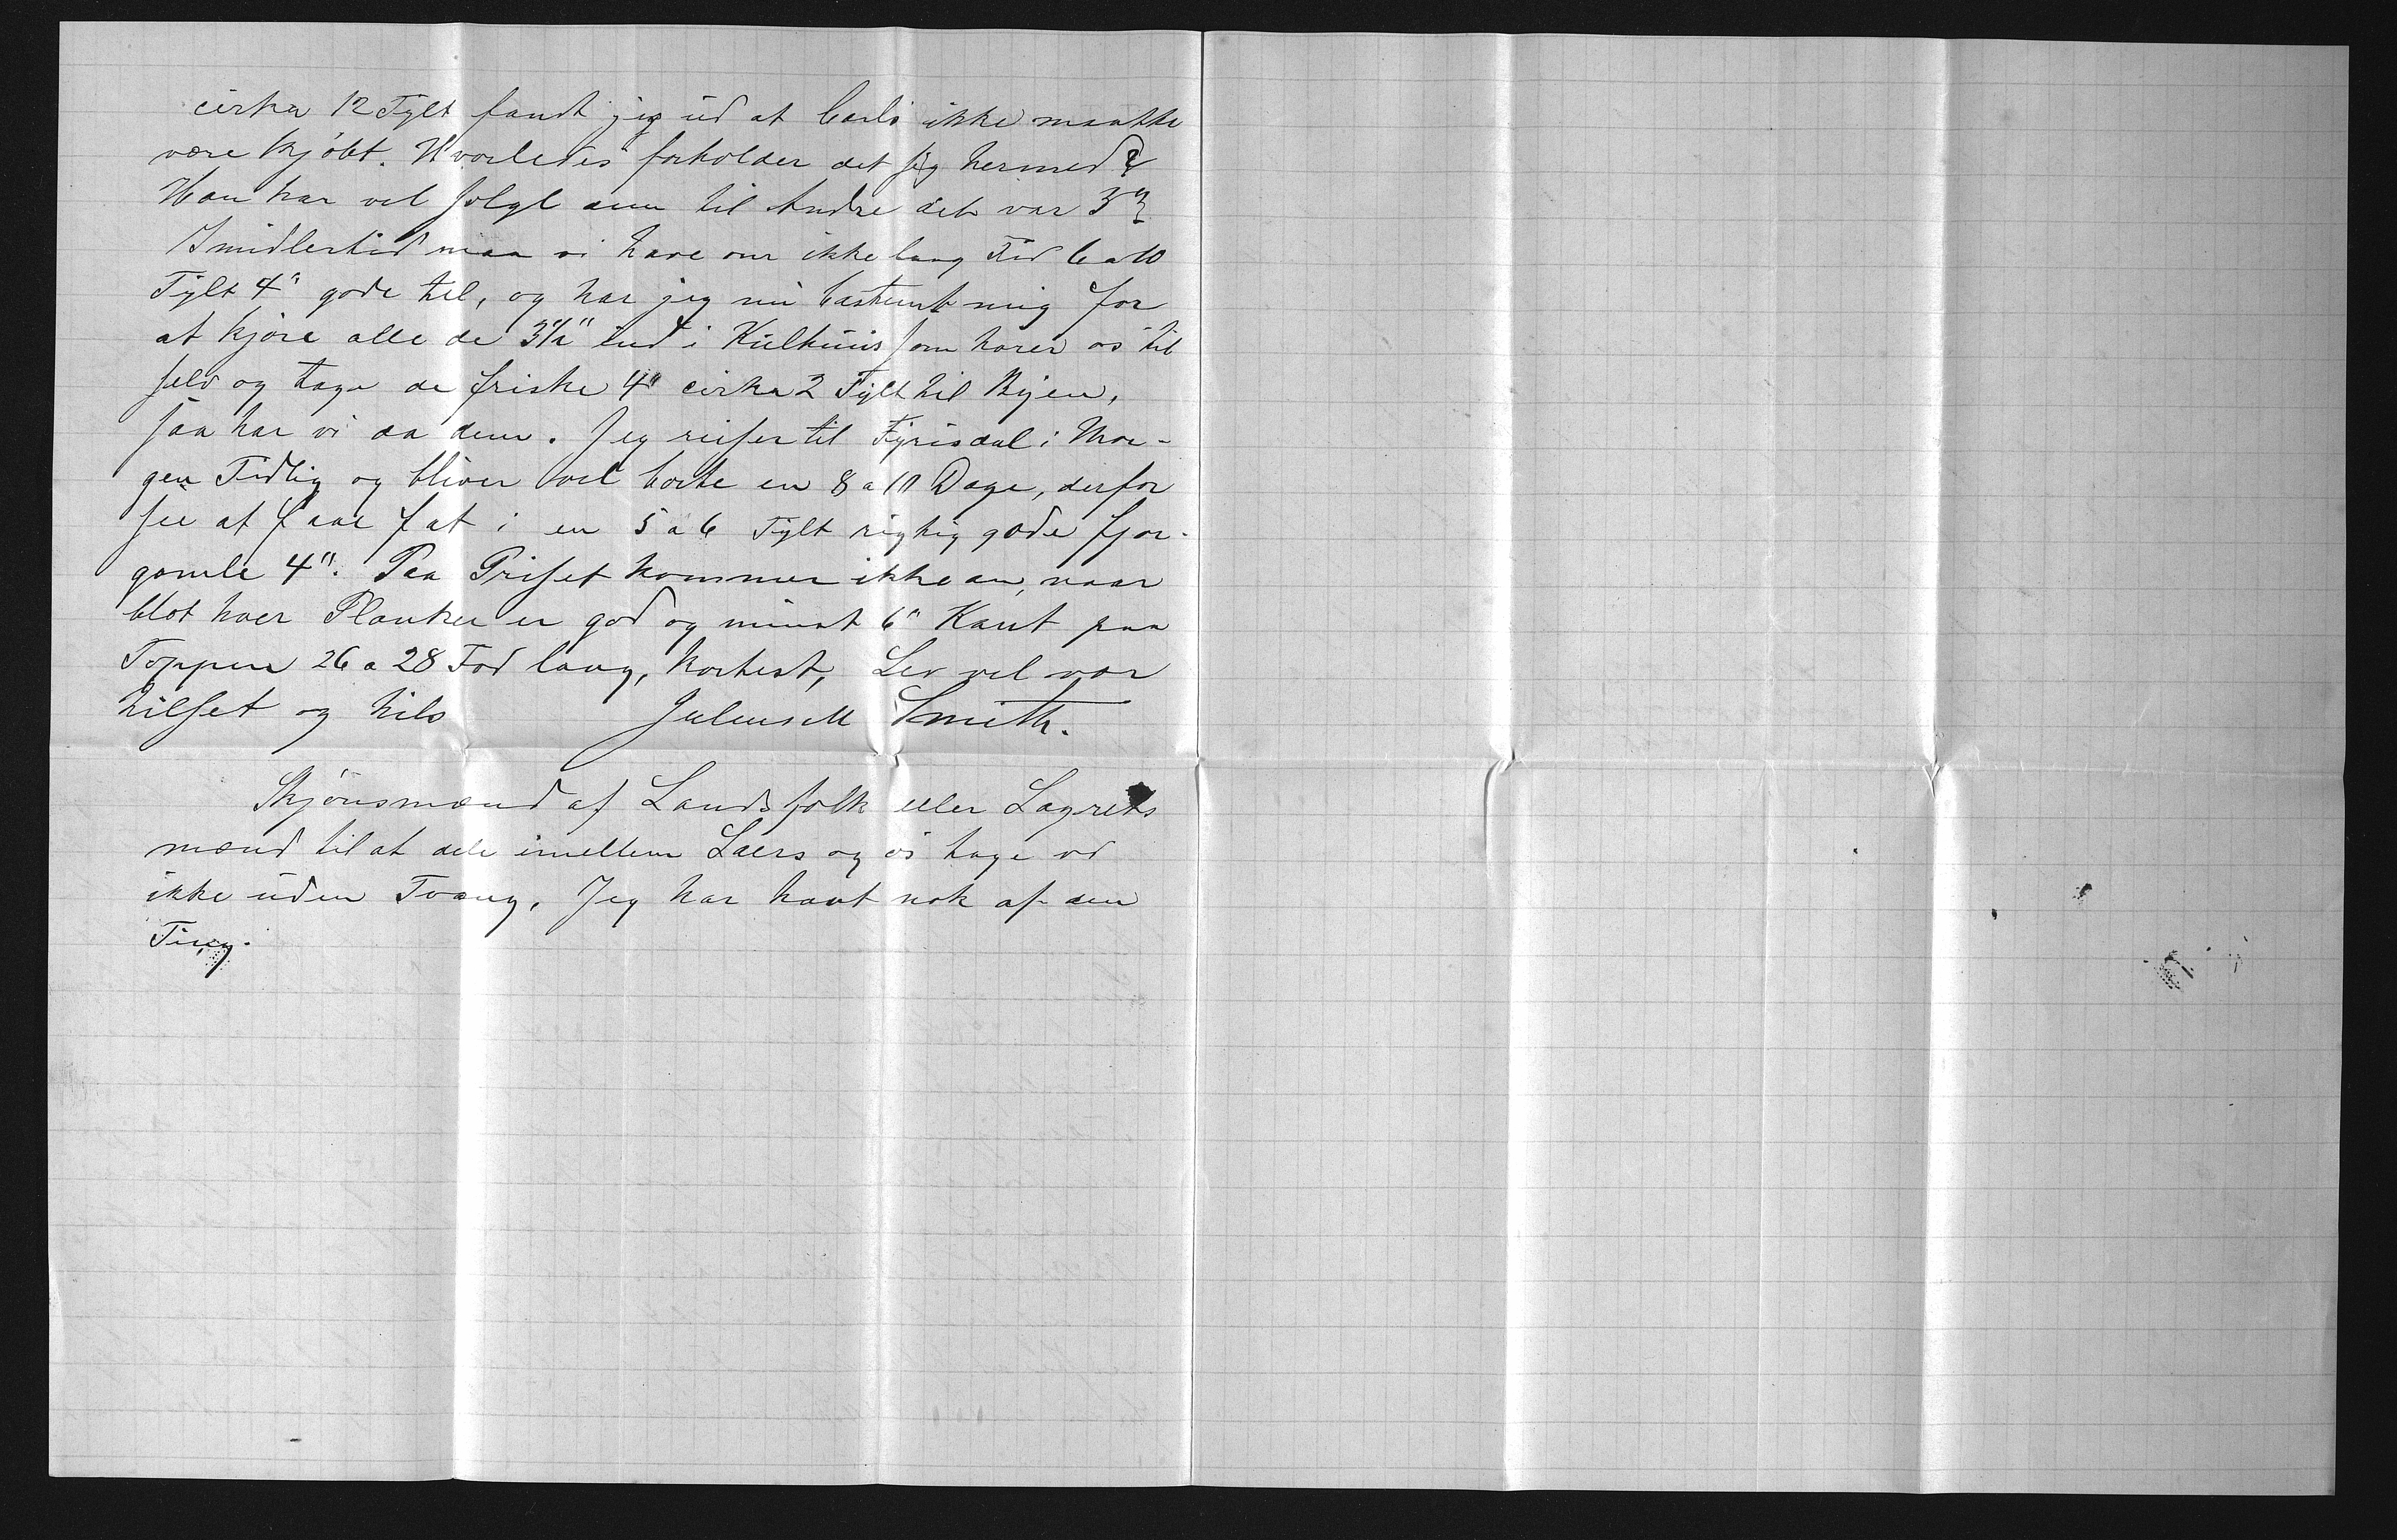 cirka 12 Tylt fandt jeg ud at Carls ikke maatte
være kjöbt. Hvorledes forholder det sig hermed?
Han har vel solgt dem til Andre det var 3"
Imidlertid maa vi have om ikke lang Tid 6 a 10
Tylt 4" gode til, og har jeg nu bestemt mig for
at kjöre alle de 3½" ind i Kulhuus som hörer os til
selv og tage de friske 4" cirka 2 Tylt til Byen,
saa har vi da dem. Jeg reiser til Fyrisdal i Mor-
gen Tidlig og bliver vel borte en 8 a 10 Dage, derfor
see at faae fat i en 5 a 6 Tylt rigtig gode fjor-
gamle 4". Paa Priset kommer ikke an, naar
blot hver Planker er god og minst 6" Kant paa
Toppen 26 a 28 Fod lang, kortest, Lev vel vær
hilset og hils Julius M Smith.
Skjönsmænd af Landsfolk eller Lagrets
mænd til at dele imellem Laers og os tage vi
ikke uden Tvang, Jeg har havt nok af den
Ting.